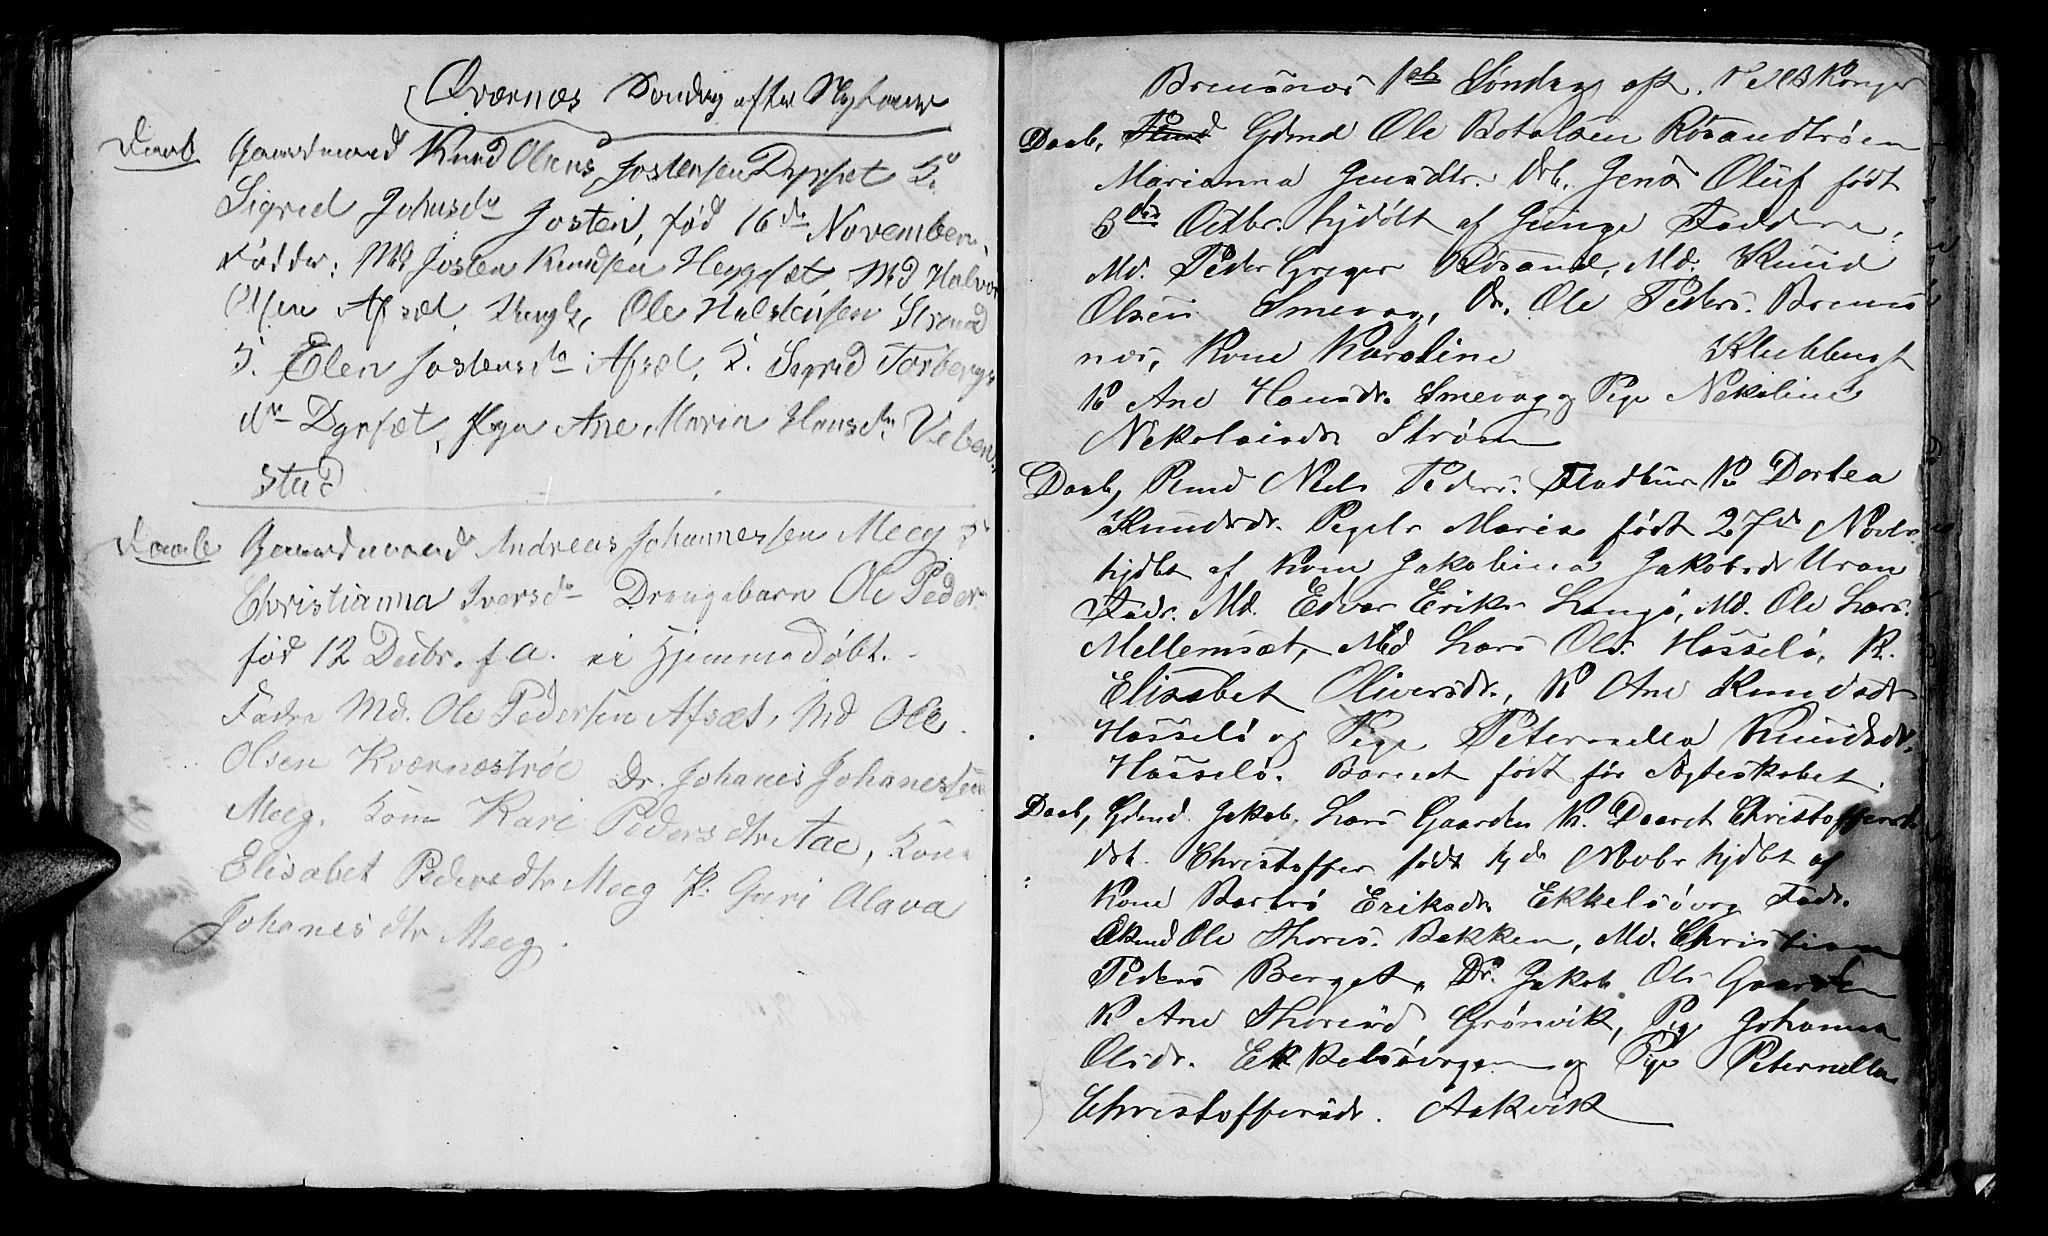 Qværnæs Søndag efter Nytaar
Daab Gaardmand Knud Olsens Jostensen Dyrset K.
Sigrid Johnsdr Josten, fød 16de November.
Fadder: Md Josten Knudsen Heggset, Md Halvor
Olsen Afsæt, Ole Halstensen Strand
K. Elen Jostensdtr Afsæt, K. Sigrid Torbergs
dtr Dyrsæt, Pige Ane Maria Hansdtr Veben
stad
Daab Gaardmand Andreas Johannessen Meeg K.
Christianna Iversdr Drengebarn Ole Peder
fød 12 Decbr. f a. ei Hjemmedøbt.
Faddre Md. Ole Pedersen Afsæt, Md Ole
Olsen Kværnæstrøe Dr. Johanes Johanessen
Meeg. Kone Kari Pedersdtr Aae, Kone
Elisabet Pedersdtr Meeg P. Guri Olava
Johanesdtr Meeg.
Bremsnes 1ste Søndag eft. Hell 3 Konger
Daab, Gdmd Ole Botolsen Røsandtrøen
Marianna Jensdtr. Drb. Jens Oluf født
3die Octbr. hjdøbt af Faddere.
Md. Peder Greger Røsand, Md. Knud
Olsen Smevag, Dr. Ole Peders. Brems
nes, Kone Karoline Klubbenes
K Ane Hansdr. Smevag og Pige Nekoline
Nekolaisdr. Strøm
Daab, Niels Peders. Fladhur K. Dortea
Knudsdr. Pigeb. Maria født 27de Novbr.
hjdbt af Kone Jakobina Jakobsdr Uran
Fadr. Md. Edvar Eriks. Langø, Md. Ole Lars.
Mellemsæt, Md Lars Ols. Hasselø, K.
Elisabet Oliversdr., K Ane Knudsdr
Hasselø og Pige Peternella Knudsdr.
Hasselø. Barnet født før Ægteskabet.
Daab, Gdmd Jakob Lars Gaarden K. Daaret Christoffersd.
Drb. Christoffer født Novbr hjdbt af
Kone Barbrø Eriksdr. Ekkelsøvog Fadr.
Ole Thores. Bakken, Md. Christian
Peders Berget, Dr. Jakob Ols Gaarden
K Ane Thoresd Grønvik, Pige Johanna
Olsdr. Ekkelsøvogen og Pige Peternella
Christoffersdr. Aakvik